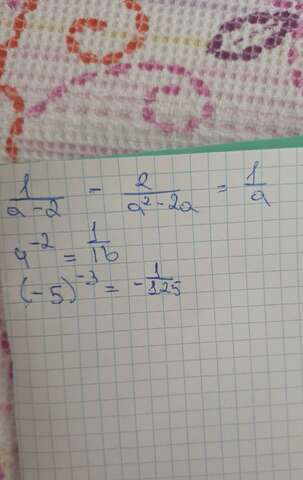 1/(a-2) - 2/(a²-2a) = 1/a
4⁻² = 1/16
(-5)⁻³ = -1/125